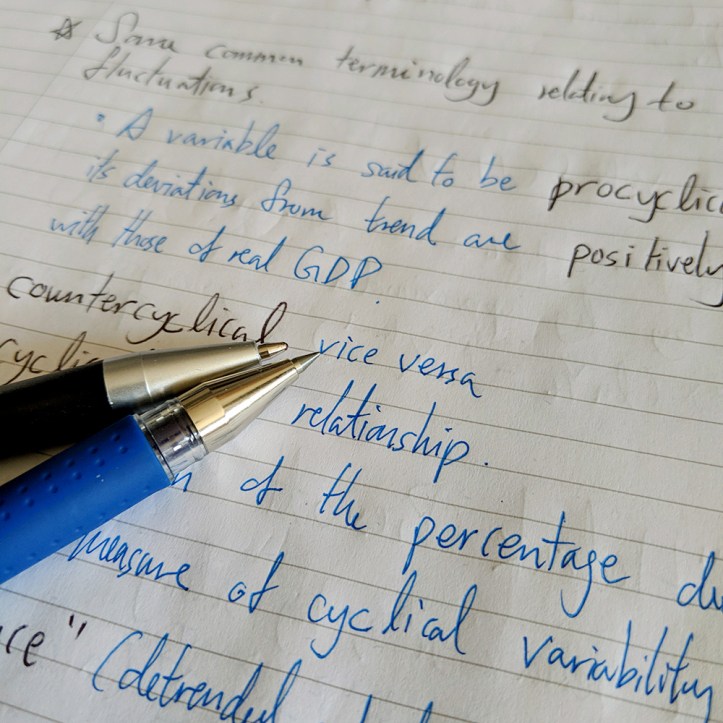 Some common terminology relating to
fluctuations.
• A variable is said to be procyclic
its deviations from trend are positively
with those of real GDP.
countercyclical vice versa
cyclic
relationship.
of the percentage
measure of cyclical variability
" (detrended